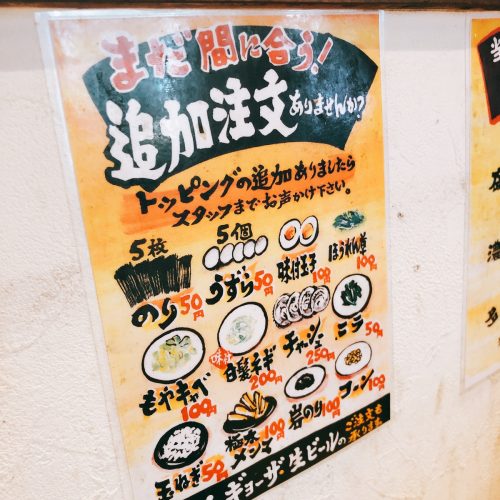 まだ間に合う!
追加注文ありませんか?
トッピングの追加ありましたら
スタッフまでお声かけ下さい。
5枚
のり50円
5個
うずら50円
味付玉子100円
ほうれん草100円
もやキャベ100円
味付
白髪ネギ200円
チャーシュー250円
ニラ50円
玉ねぎ50円
極太メンマ100円
岩のり100円
コーン100円
ギョーザ・生ビールのご注文も承ります